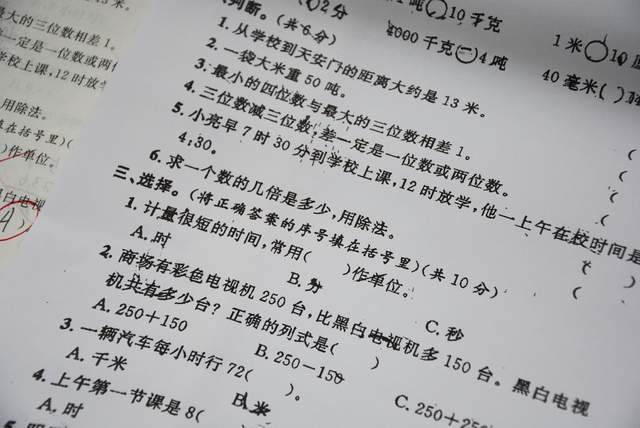 2分
1吨○10千克
4000千克○4吨
1米○10
40毫米( )
判断。(共6分)
1. 从学校到天安门的距离大约是13米。
2. 一袋大米重50吨。
3. 最小的四位数与最大的三位数相差1。
4. 三位数减三位数,差一定是一位数或两位数。
5. 小亮早7时30分到学校上课,12时放学,他一上午在校时间是
4:30。
6. 求一个数的几倍是多少,用除法。
三、选择。(将正确答案的序号填在括号里)(共10分)
1. 计量很短的时间,常用( )作单位。
A. 时
B. 分
C. 秒
2. 商场有彩色电视机250台,比黑白电视机多150台。黑白电视
机共有多少台?正确的列式是( )
A. 250+150
B. 250-150
C. 250+250
3. 一辆汽车每小时行72( )。
A. 千米
B. 米
4. 上午第一节课是8(
A. 时
最大的三位数相差1。
一定是一位数或两
学校上课,12时放
,用除法。
填在括号里)(
)作单位。
黑白电视
A)